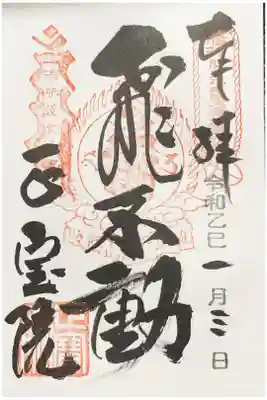 奉拝
令和乙巳一月三日
飛不動
正宝院